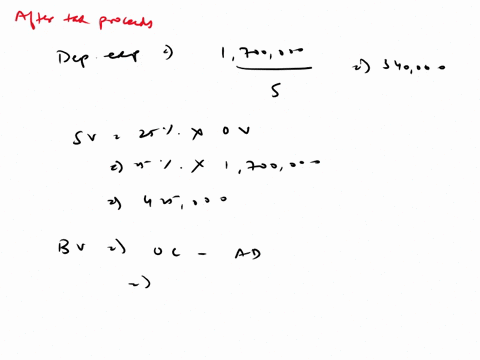 After tax proceeds
Dep. exp => 1,700,000 / 5 => 340,000
SV = 25% X OV
=> 25% X 1,700,000
=> 425,000
BV => OC - AD
=>